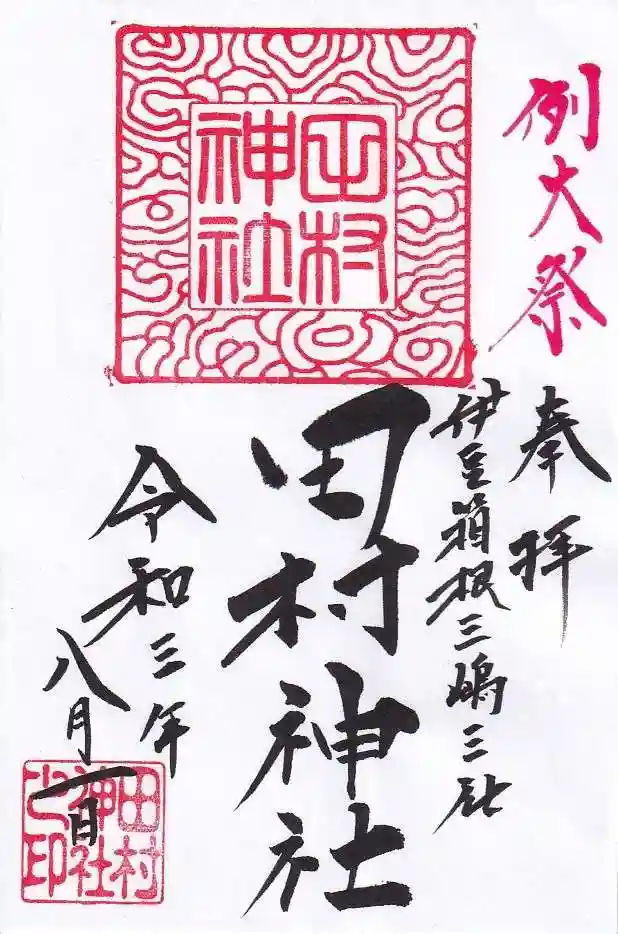 例大祭
奉拝
伊豆箱根三嶋三社
田村神社
田村神社
令和三年
八月一日
田村神社之印